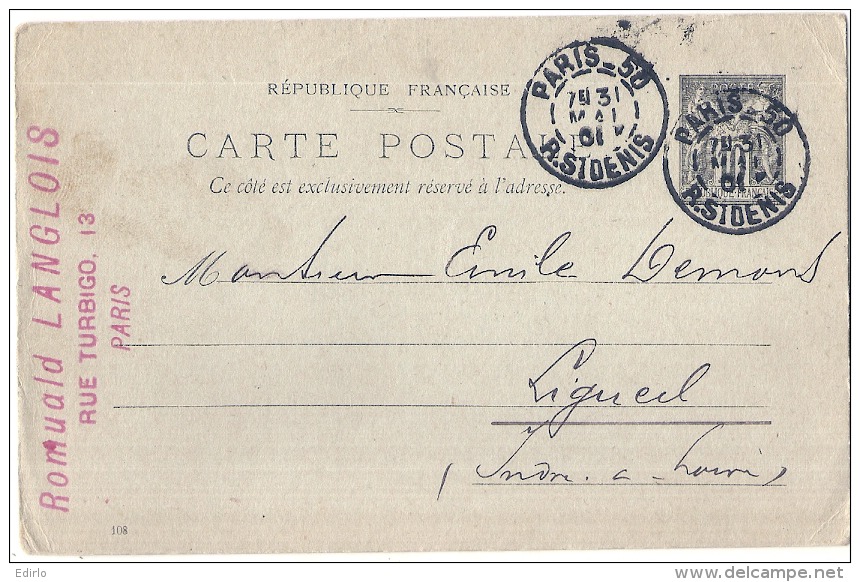 RÉPUBLIQUE FRANÇAISE
CARTE POSTALE
Ce côté est exclusivement réservé à l'adresse.
PARIS_50
7E 31
MAI
01
R.STDENIS
PARIS_50
7E 31
MAI
01
R.STDENIS
Romuald LANGLOIS
RUE TURBIGO, 13
PARIS
Monsieur Emile Demons
Ligueil
(Indre-a-Loire)
108
Edirlo
delcampe.net